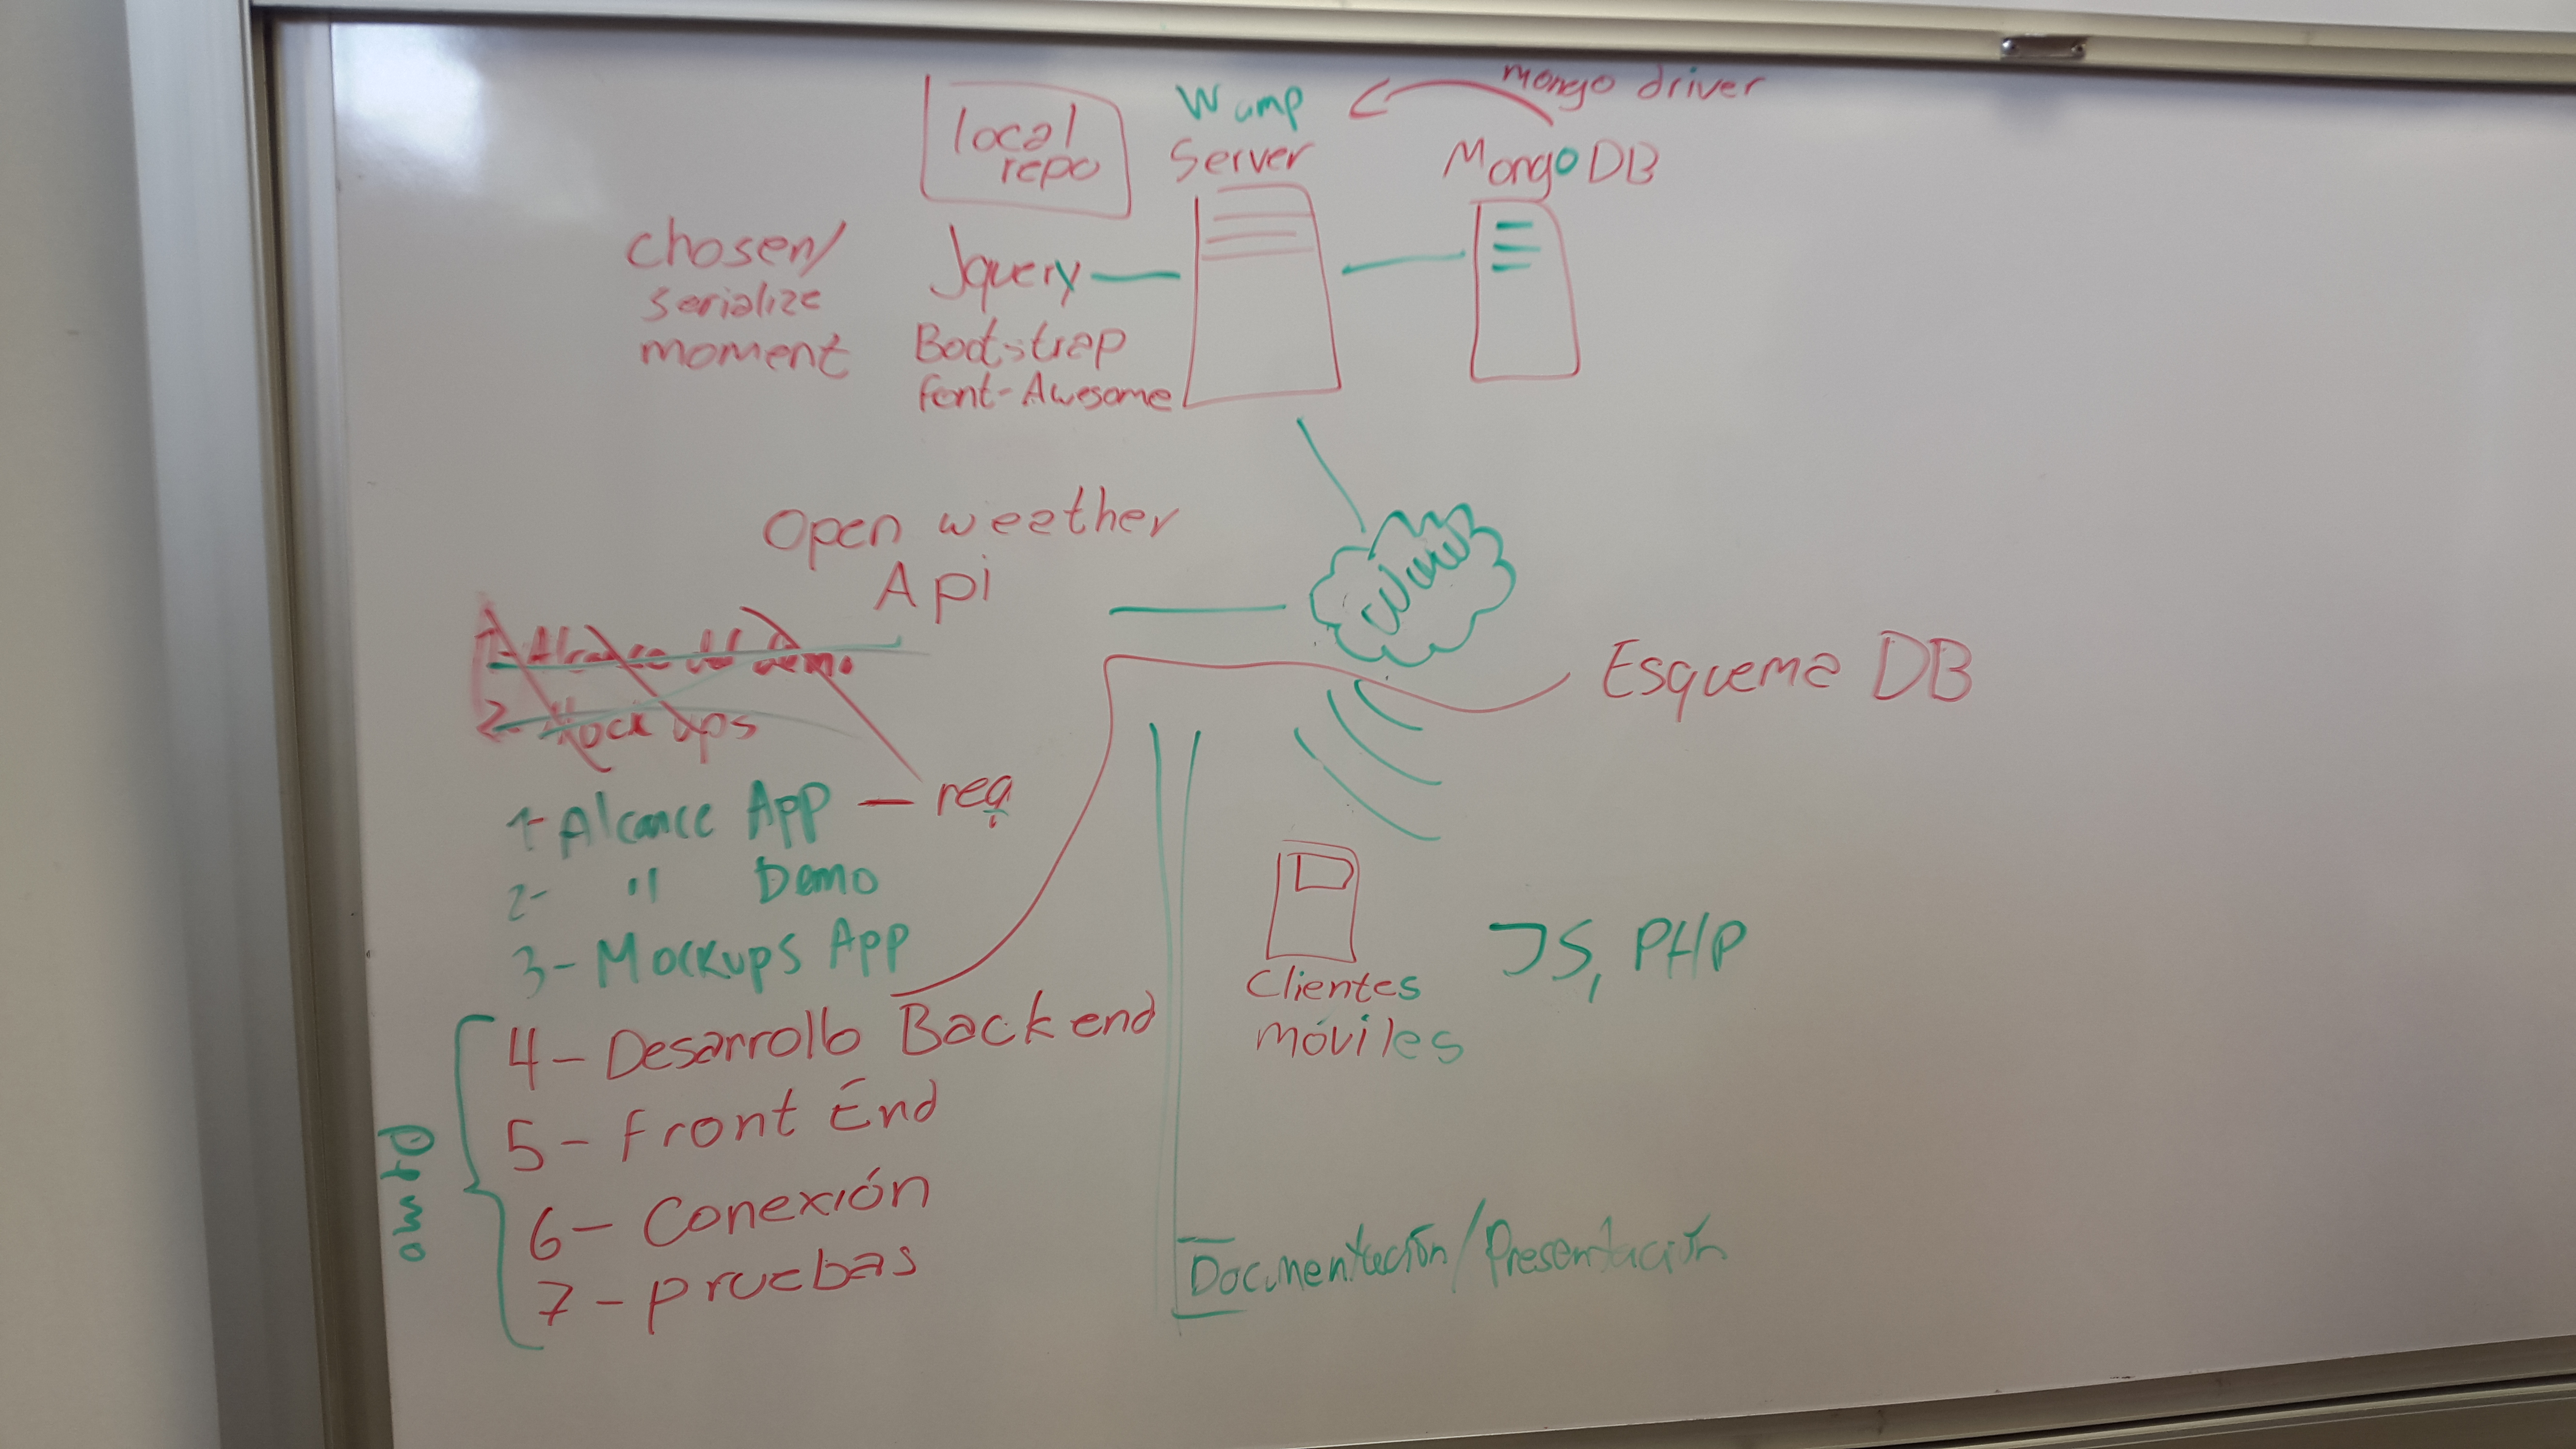 local
repo
Wamp
Server
mongo driver
MongoDB
chosen/
serialize
moment
Jquery
Bootstrap
font-Awesome
Open weather
Api
1-Alcance del Demo
2-Mock ups
Esquema DB
1-Alcance App — req.
2- " Demo
3-Mockups App
4-Desarrollo Backend
5-Front End
6-Conexión
7-pruebas
Demo
Clientes
móviles
JS, PHP
Documentación/Presentación